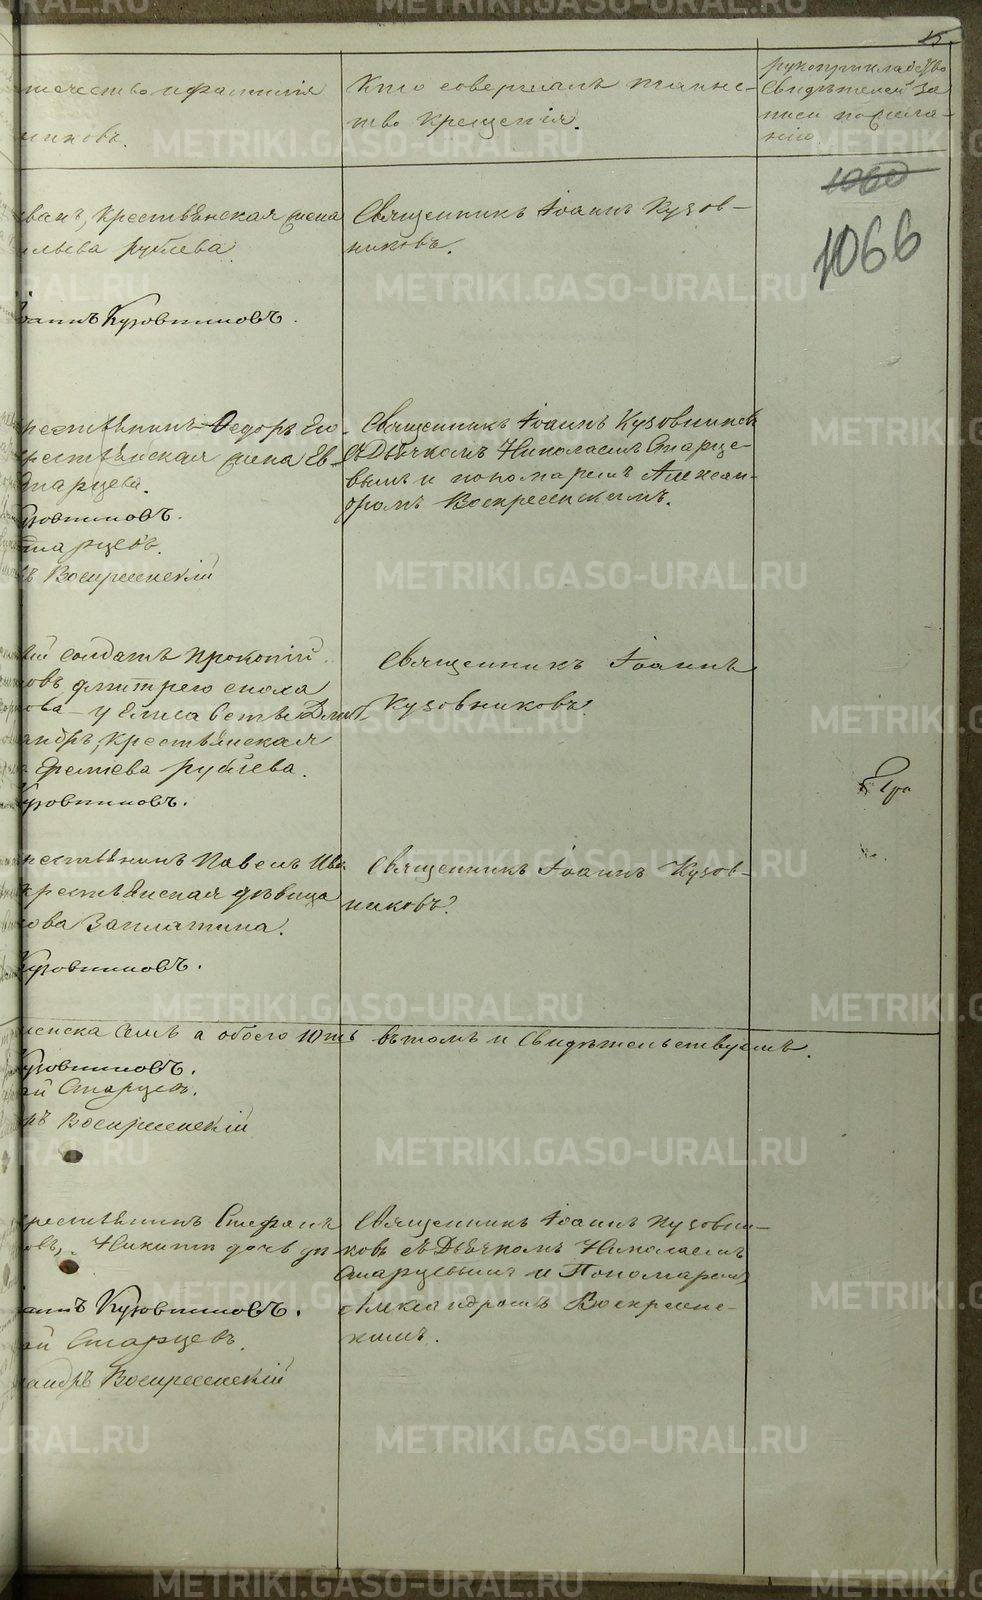 15.
отчество и фамилія
никовъ.
Кто совершалъ таинс-
тво крещенія.
рукоприкладство
свидѣтелей за
писи по жела-
нію
1060
1066
крестьянская жена
ильева рублева.
Іоаннъ Кузовниковъ.
Священникъ Іоаннъ Кузов-
никовъ.
крестьянинъ Ѳедоръ
крестьянская жена Ев-
Старцева.
Кузовниковъ.
Старцевъ.
ъ Воскресенскій
Священникъ Іоаннъ Кузовниковъ
съ Дьячкомъ Николаемъ Старце-
вымъ и пономаремъ Алексан-
дромъ Воскресенскимъ.
солдатъ Прокопій
у Елисаветы
андръ, крестьянская
рублева.
Кузовниковъ.
Священникъ Іоаннъ
Кузовниковъ.
крестьянинъ Павелъ Ива
крестьянская дѣвица
Заплатина.
Кузовниковъ.
Священникъ Іоаннъ Кузов-
никовъ.
женска семь а обоего 10ть въ томъ и свидѣтельствуемъ.
Кузовниковъ.
ай Старцевъ.
ръ Воскресенскій
крестьянинъ Стефанъ
овъ, Никити дочь
аннъ Кузовниковъ.
ай Старцевъ.
андръ Воскресенскій
Священникъ Іоаннъ Кузовни-
ковъ съ Дьячкомъ Николаемъ
Старцевымъ и Пономаремъ
Александромъ Воскресенс-
кимъ.
METRIKI.GASO-URAL.RU